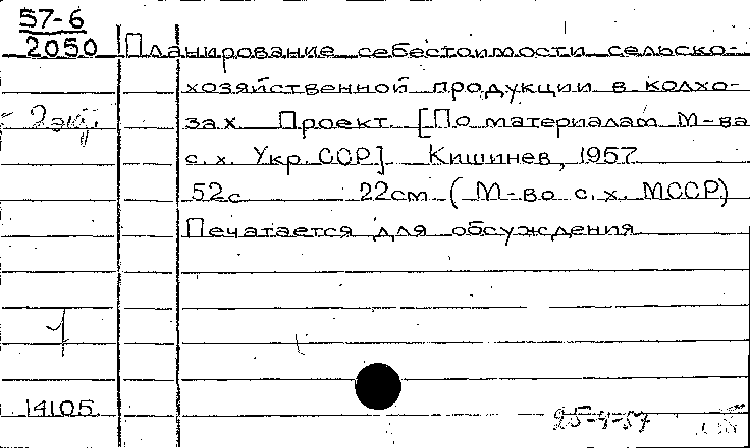 57-6
2050 Планирование себестоимости сельско-
хозяйственной продукции в колхо-
2 экз. зах. Проект. [По материалам М-ва
с.х. Укр. ССР] Кишинев, 1957
52с 22см (М-во с.х. МССР)
Печатается для обсуждения
14105
25-4-57